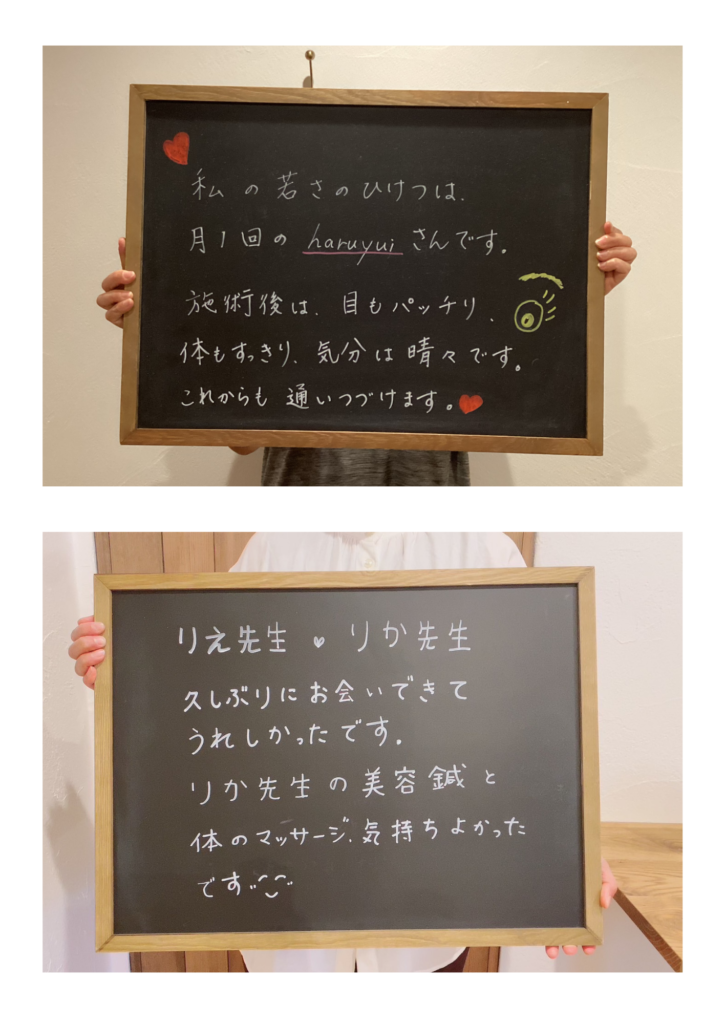 私の若さのひけつは、
月1回の haruyui さんです。
施術後は、目もパッチリ、
体もすっきり、気分は晴々です。
これからも通いつづけます。
りえ先生 りか先生
久しぶりにお会いできて
うれしかったです。
りか先生の美容鍼と
体のマッサージ、気持ちよかった
です